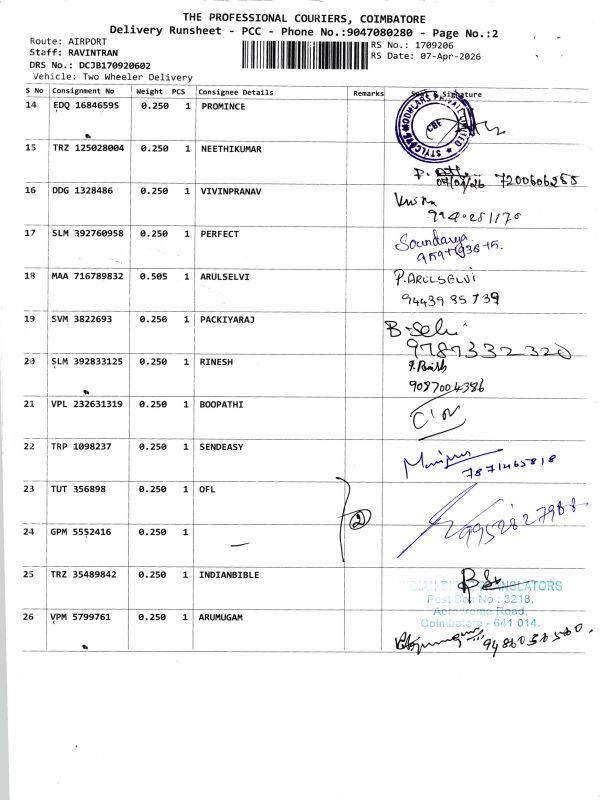 THE PROFESSIONAL COURIERS, COIMBATORE
Delivery Runsheet - PCC - Phone No.:9047080280 - Page No.:2
Route: AIRPORT
Staff: RAVINTRAN
DRS No.: DCJB170920602
Vehicle: Two Wheeler Delivery
RS No.: 1709206
RS Date: 07-Apr-2026
S No Consignment No Weight PCS Consignee Details Remarks Signature
14 EDQ 16846595 0.250 1 PROMINCE
CBE
15 TRZ 125028004 0.250 1 NEETHIKUMAR
07/04/26 7200606255
16 DDG 1328486 0.250 1 VIVINPRANAV
17 SLM 392760958 0.250 1 PERFECT
Soundarya
18 MAA 716789832 0.505 1 ARULSELVI P.ARULSELVI
94439 85739
19 SVM 3822693 0.250 1 PACKIYARAJ
9787332320
20 SLM 392833125 0.250 1 RINESH
9087004386
21 VPL 232631319 0.250 1 BOOPATHI
22 TRP 1098237 0.250 1 SENDEASY
7871465818
23 TUT 356898 0.250 1 OFL
2
9952827988
24 GPM 5552416 0.250 1
25 TRZ 35489842 0.250 1 INDIANBIBLE
TRANSLATORS
Post Box No : 3218,
Aerodrome Road,
Coimbatore - 641 014.
26 VPM 5799761 0.250 1 ARUMUGAM